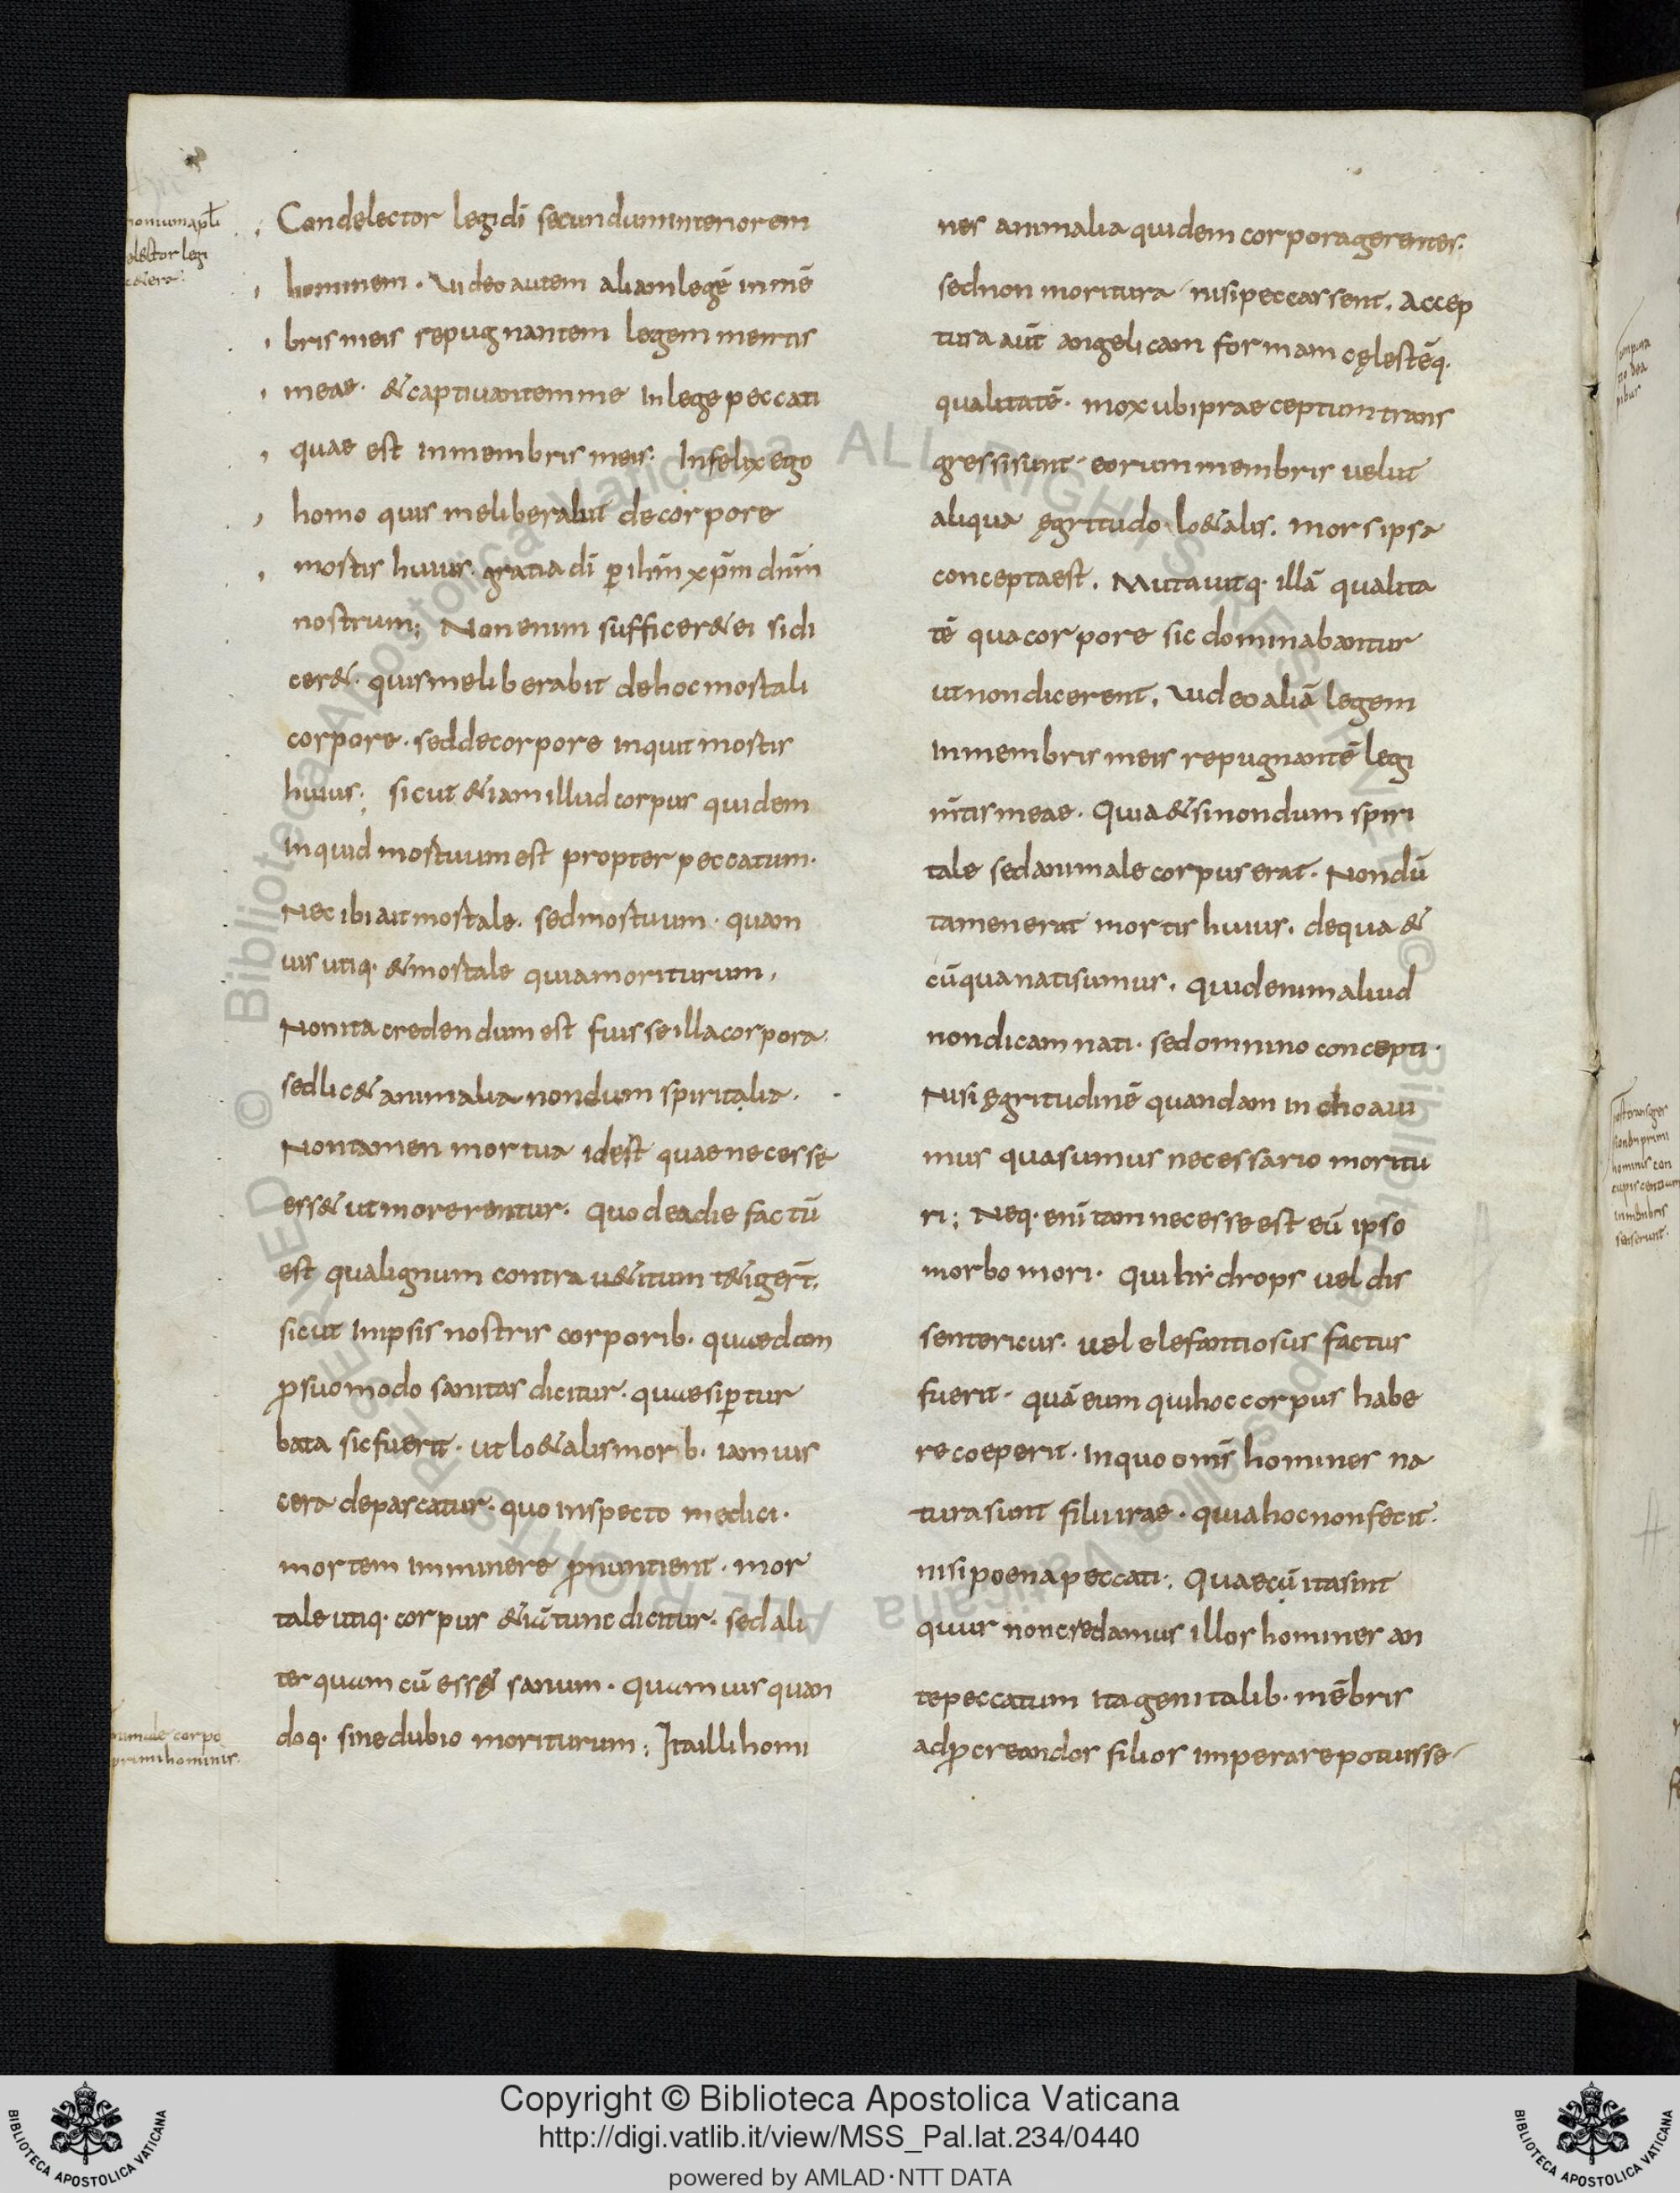 Condelector legi dī secundum interiorem
hominem. Uideo autem aliam legē in mē
bris meis repugnantem legem mentis
meae. & captiuantem me in lege peccati
quae est in membris meis. Infelix ego
homo quis me liberabit de corpore
mortis huius. gratia dī ꝑ ihm̄ xp̄m dn̄m
nostrum; Non enim suffic&er& ei si di
cer&. quis me liberabit de hoc mortali
corpore. sed de corpore inquit mortis
huius; sicut & iam illud corpus quidem
inquid mortuum est propter peccatum.
Nec ibi ait mortale. sed mortuum. quam
uis utiq. & mortale quia moriturum,
Non ita credendum est fuisse illa corpora.
sed lic& animalia nondum spiritalia.
Non tamen mortua id est quae necesse
ess& ut morerentur. quod ea die factū
est qua lignum contra u&itum t&iger̄t.
sicut in ipsis nostris corporib. quaedam
ꝓ suo modo sanitas dicitur. quae si ꝑtur
bata sic fuerit. ut lo&alis morib. iam uis
cera depascatur. quo inspecto medici.
mortem imminere ꝓnuntient. mor
tale utiq. corpus & iā tunc dicitur. sed ali
ter quam cū ess& sanum. quamuis quan
doq. sine dubio moriturum; Ita illi homi
nes animalia quidem corpora gerentes.
sed non moritura nisi peccassent. Accep
tura aūt angelicam formam cęlestēq.
qualitatē. mox ubi praeceptum trans
gressi sunt. eorum membris uelut
aliqua ęgritudo lo&alis. mors ipsa
concepta est. Mutauitq. illā qualita
tē qua corpore sic dominabantur
ut non dicerent. Uideo aliā legem
in membris meis repugnantē legi
m̄tis meae. Quia & si nondum spiri
tale sed animale corpus erat. Nondū
tamen erat mortis huius. de qua &
cū qua nati sumus. quid enim aliud
non dicam nati. sed omnino concepti.
Nisi ęgritudinē quandam inchoaui
mus qua sumus necessario moritu
ri; Neq. enī tam necesse est eū ipso
morbo mori. qui hiẏdrops uel dis
sentericus. uel elefantiosus factus
fuerit. quā eum qui hoc corpus habe
re coeperit. in quo om̄s homines na
tura sunt filii irae. quia hoc non fecit.
nisi poena peccati; Quae cū ita sint
quur non credamus illos homines an
te peccatum ita genitalib. mēbris
ad ꝓcreandos filios imperare potuisse
Copyright © Biblioteca Apostolica Vaticana
http://digi.vatlib.it/view/MSS_Pal.lat.234/0440
powered by AMLAD・NTT DATA
BIBLIOTECA APOSTOLICA VATICANA
BIBLIOTECA APOSTOLICA VATICANA